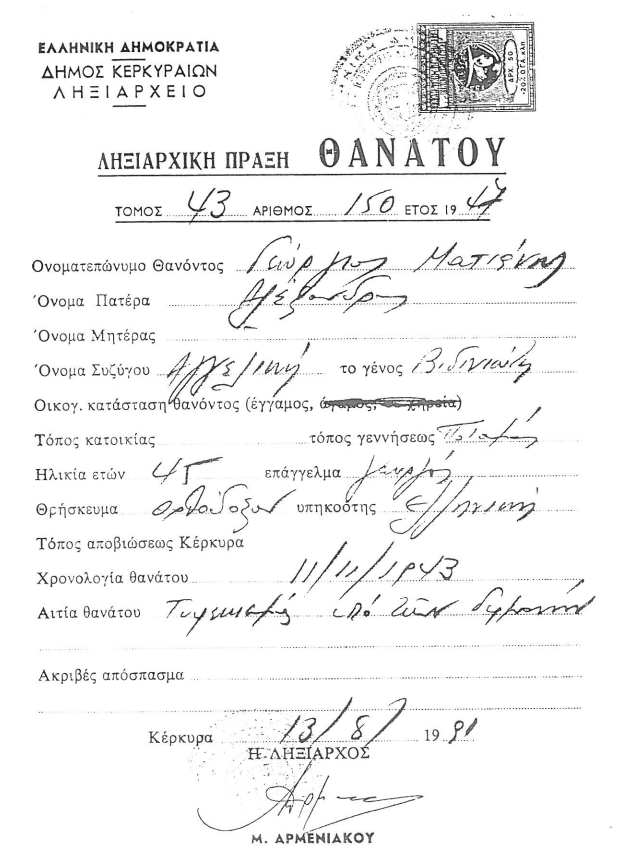 ΕΛΛΗΝΙΚΗ ΔΗΜΟΚΡΑΤΙΑ
ΔΗΜΟΣ ΚΕΡΚΥΡΑΙΩΝ
ΛΗΞΙΑΡΧΕΙΟ
ΔΡΧ. 50
ΛΗΞΙΑΡΧΙΚΗ ΠΡΑΞΗ ΘΑΝΑΤΟΥ
ΤΟΜΟΣ 43 ΑΡΙΘΜΟΣ 150 ΕΤΟΣ 19
Ονοματεπώνυμο Θανόντος Γεώργιος
Όνομα Πατέρα Αλέξανδρος
Όνομα Μητέρας
Όνομα Συζύγου Αγγελική το γένος
Οικογ. κατάσταση θανόντος (έγγαμος, άγαμος, εν χηρεία)
Τόπος κατοικίας τόπος γεννήσεως Ποταμός
Ηλικία ετών επάγγελμα γεωργός
Θρήσκευμα ορθόδοξον υπηκοότης ελληνική
Τόπος αποβιώσεως Κέρκυρα
Χρονολογία θανάτου 11/11/1943
Αιτία θανάτου Τυφεκισμός υπό των
Ακριβές απόσπασμα
Κέρκυρα 13/8/ 1991
Η ΛΗΞΙΑΡΧΟΣ
Μ. ΑΡΜΕΝΙΑΚΟΥ